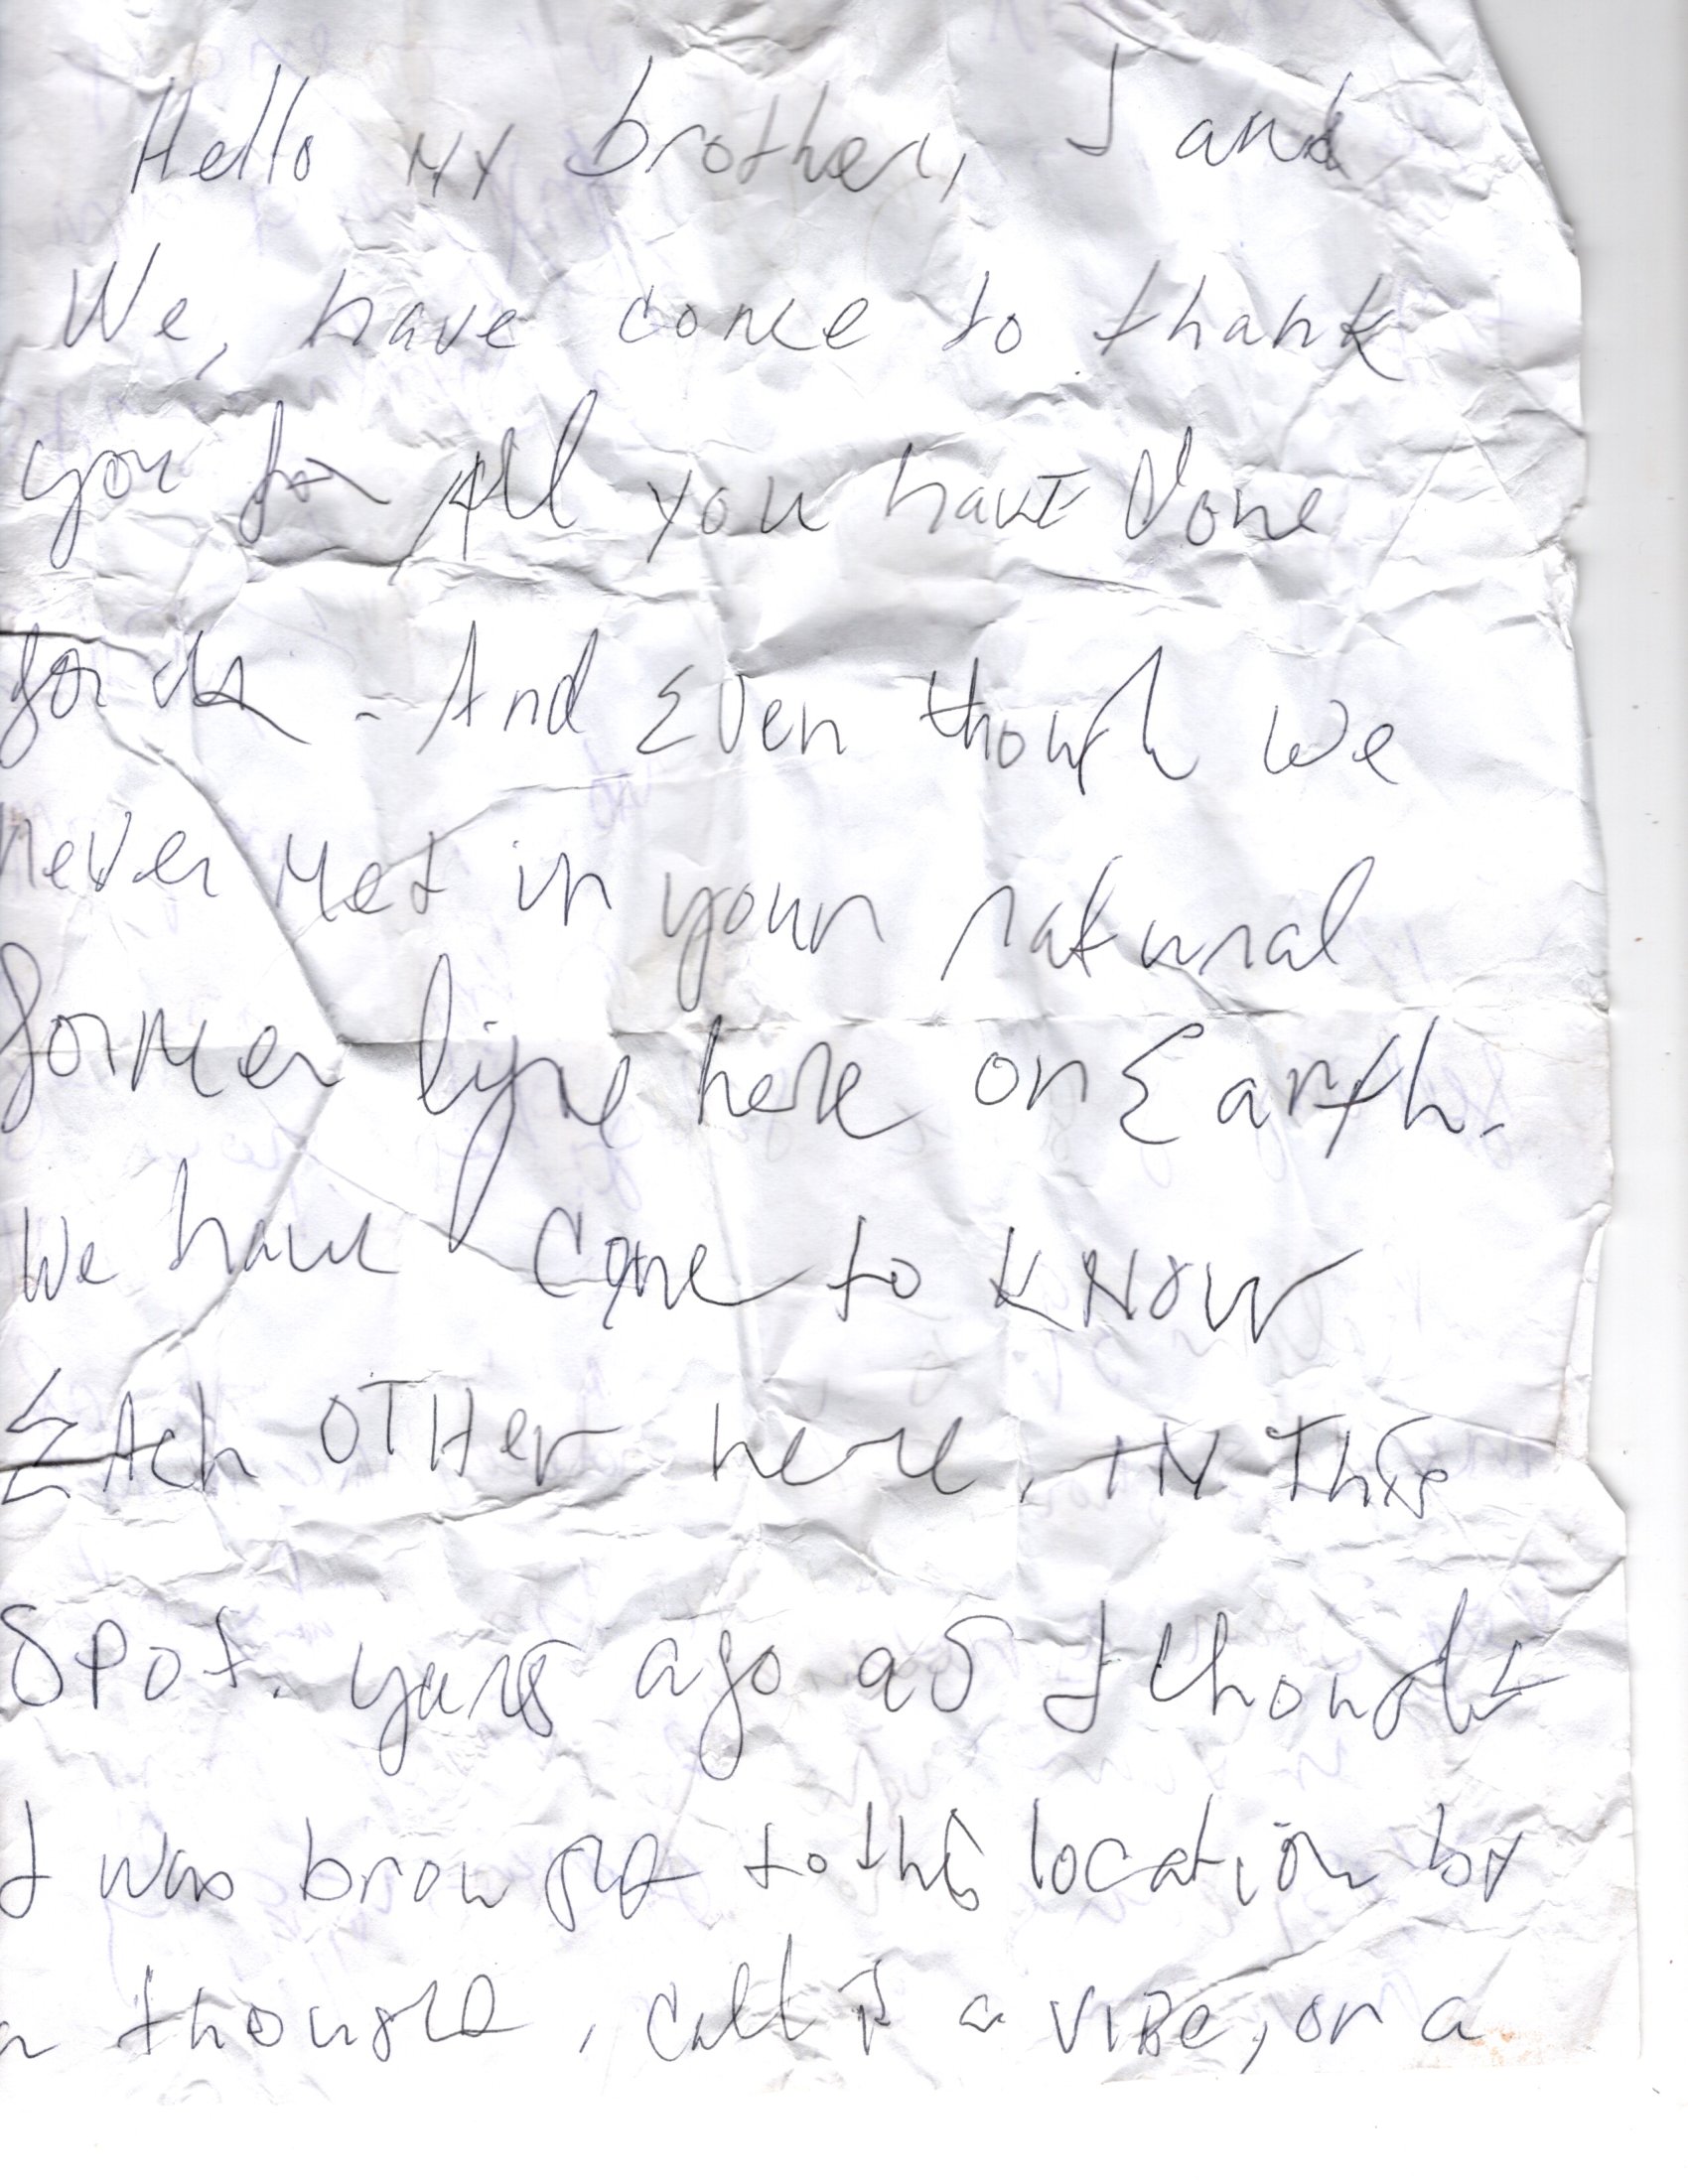 Hello my brother, I and
We, have come to thank
you for All you have done
for us. And Even though we
never met in your natural
former life here on Earth.
We have come to know
EAch OTHer here, IN This
Spot. years ago as I thought
I was brought to this location by
a thought, call it a viBe, or a